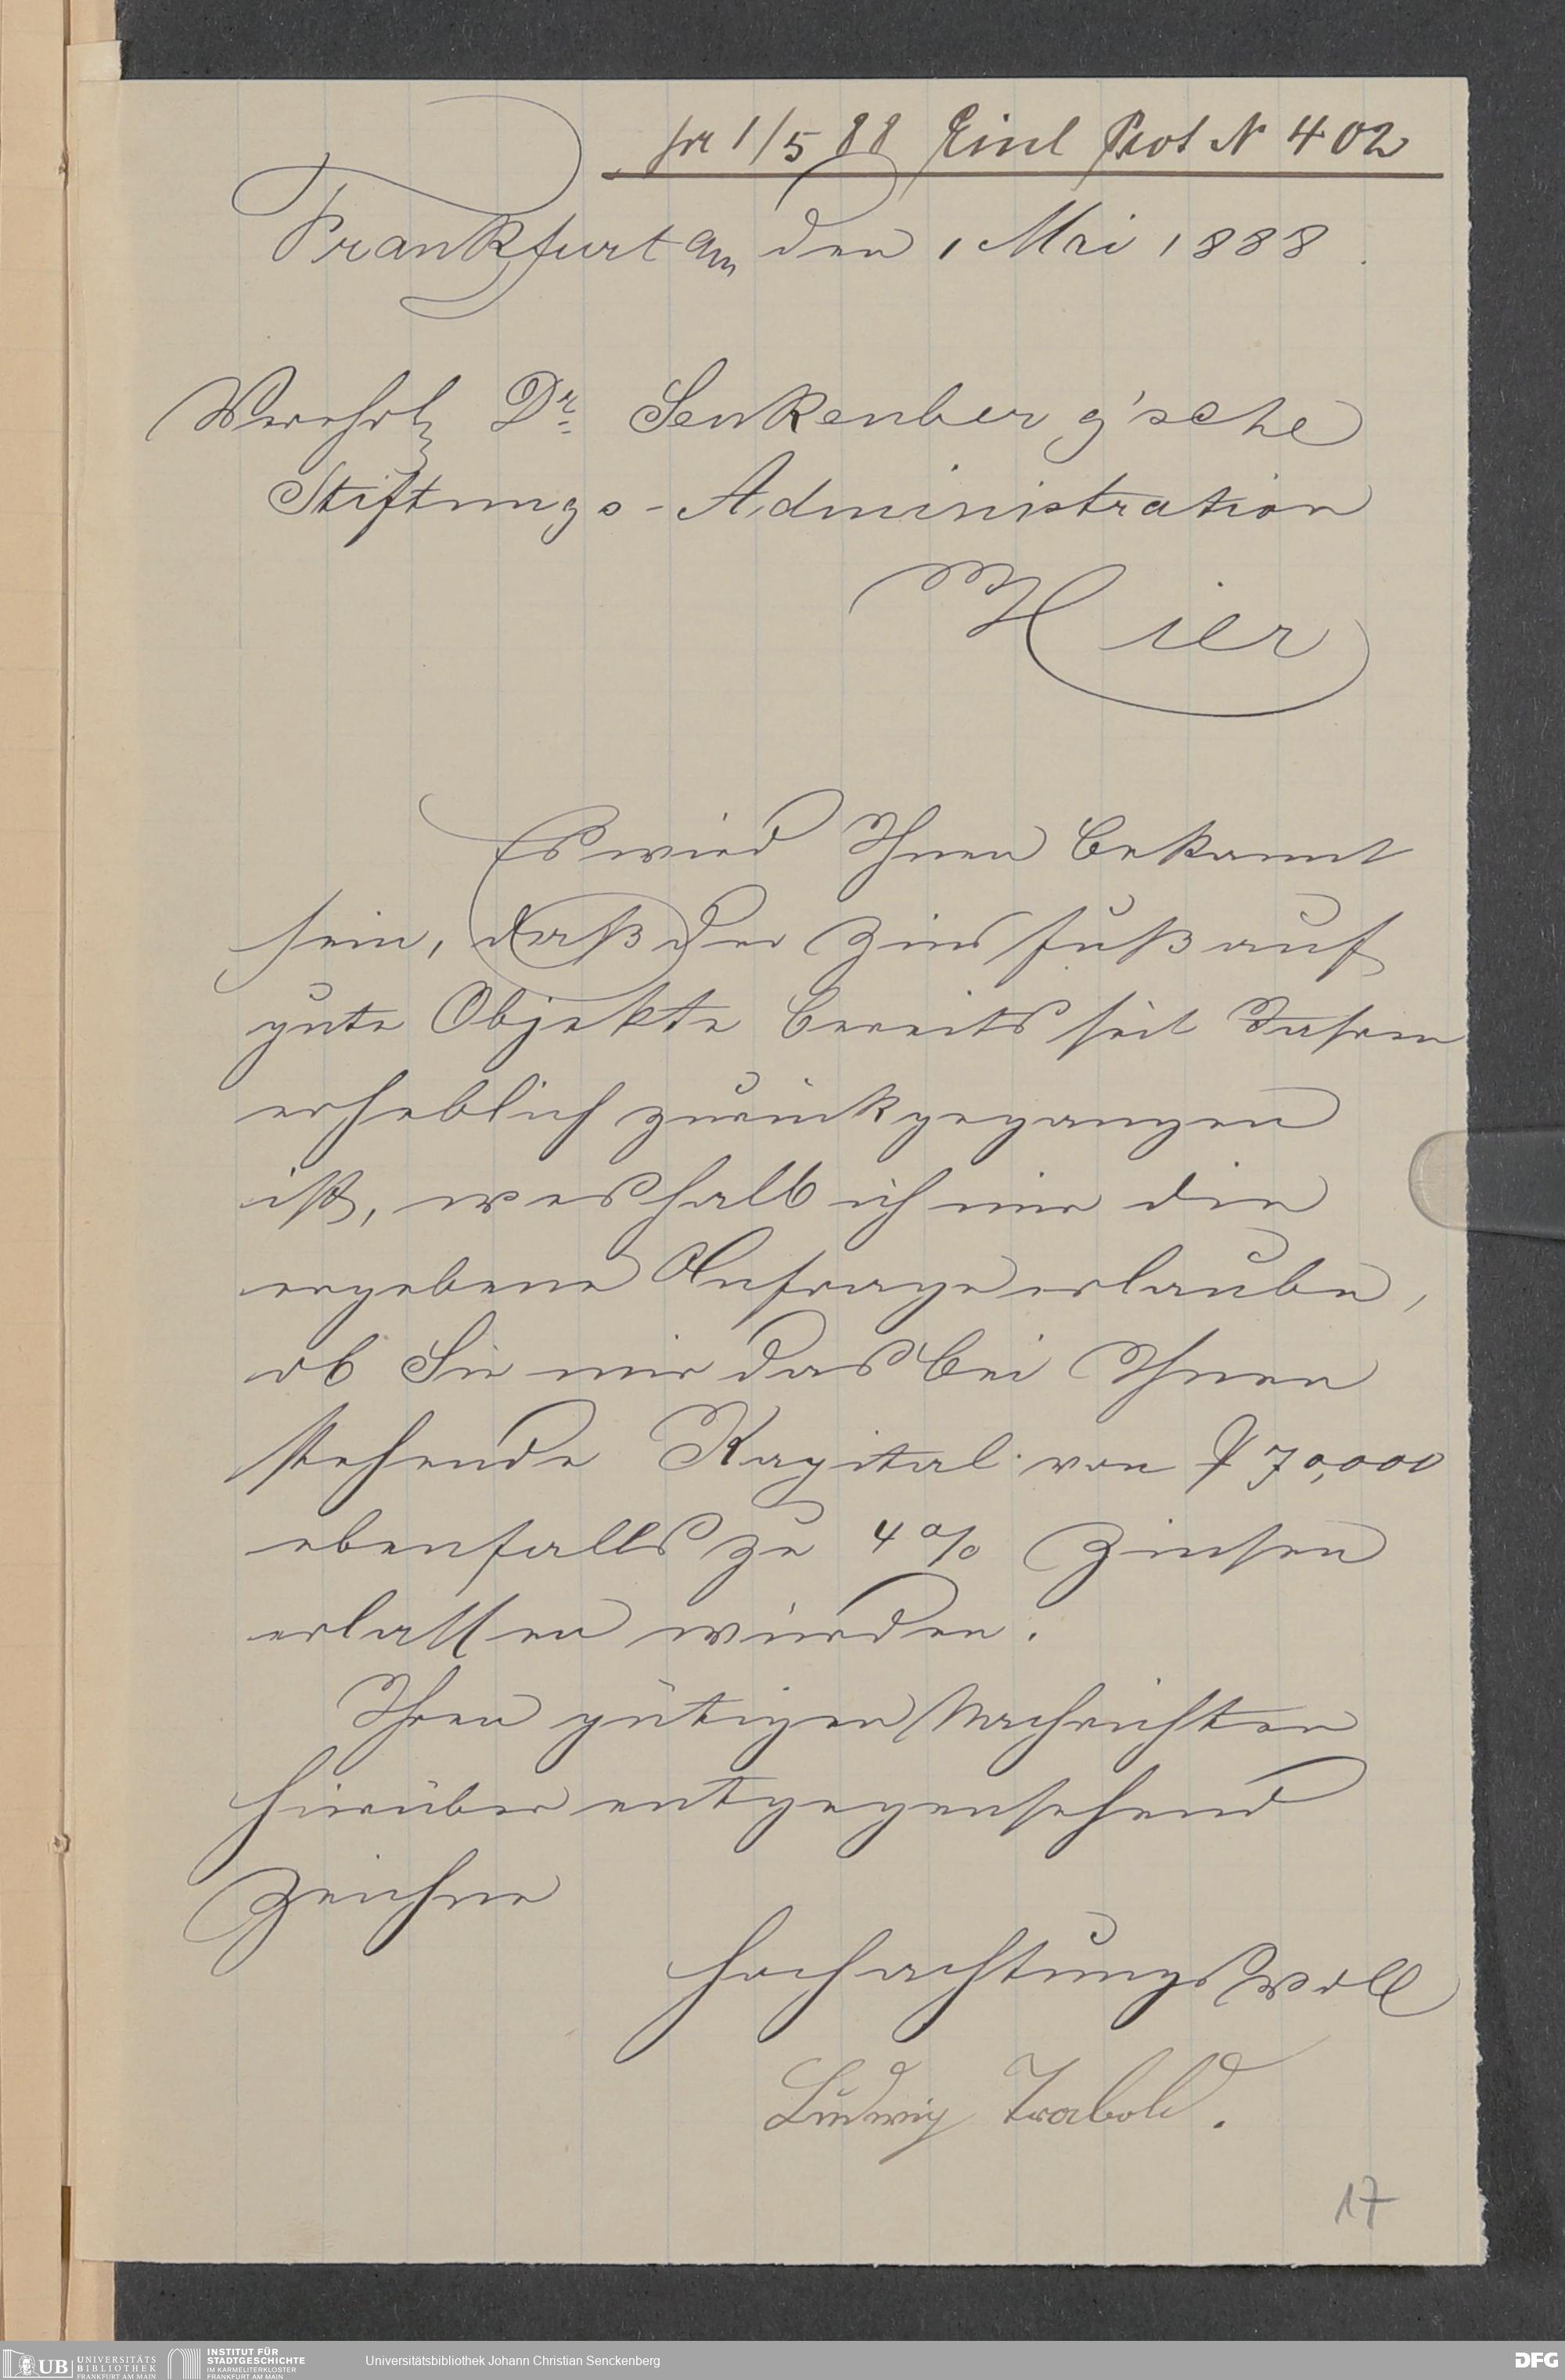 pr 1/5 88 Einl Prot N 402
Frankfurt am den 1 Mai 1888.
Dr. Senkenberg'sche
Stiftungs-Administration
Hier
Es wird Ihnen bekannt
sein, daß der Zinsfuß auf
gute Objekte bereits seit Jahren
erheblich zurückgegangen
ist, weshalb ich mir die
ergebene Anfrage erlaube,
ob Sie mir das bei Ihnen
stehende Kapital von ℳ 70,000
ebenfalls zu 4 % Zinsen
erlassen würden.
Ihren gütigen Nachrichten
hierüber entgegensehend
Zeichne
hochachtungsvoll
Ludwig Trabold.
17
UB UNIVERSITÄTS
BIBLIOTHEK
FRANKFURT AM MAIN
INSTITUT FÜR
STADTGESCHICHTE
IM KARMELITERKLOSTER
FRANKFURT AM MAIN
Universitätsbibliothek Johann Christian Senckenberg
DFG